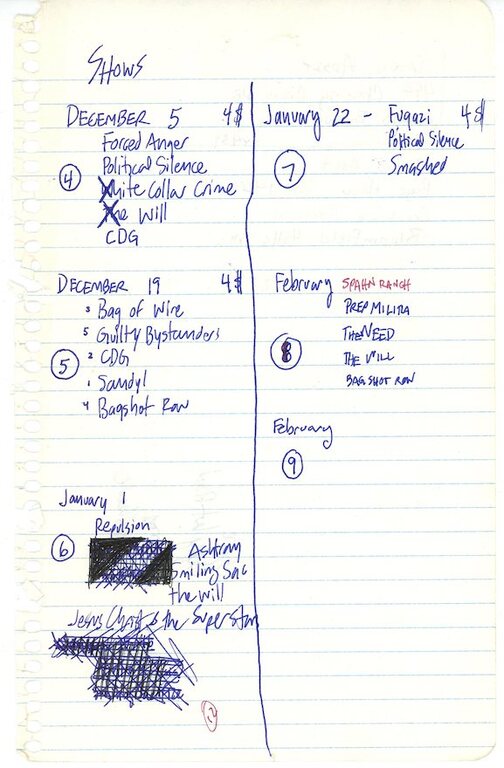 Shows
December 5 4$
Forced Anger
④
Political Silence
White Collar Crime
The Will
CDG
December 19 4$
3 Bag of Wire
5 Guilty Bystanders
⑤
2 CDG
1 Sandyl
4 Bagshot Row
January 1
Repulsion
⑥
Ashtray
Smiling Sac
the will
Jesus Christ & the Superstars
January 22 - Fugazi 4$
Political Silence
⑦
Smashed
February SPAHN RANCH
PREP MILITIA
⑧
THE NEED
THE WILL
BAGSHOT ROW
February
⑨